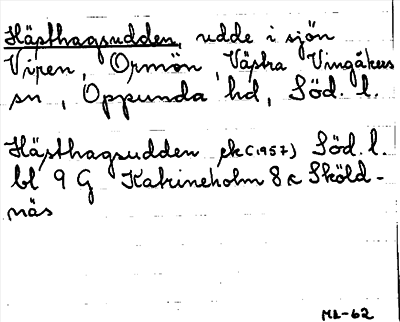 Hästhagsudden, udde i sjön
Viren, Ormön, Västra Vingåkers
sn, Oppunda hd, Söd. l.
Hästhagsudden ek (1957) Söd. l.
bl 9 G Katrineholm 8 c Sköld-
näs